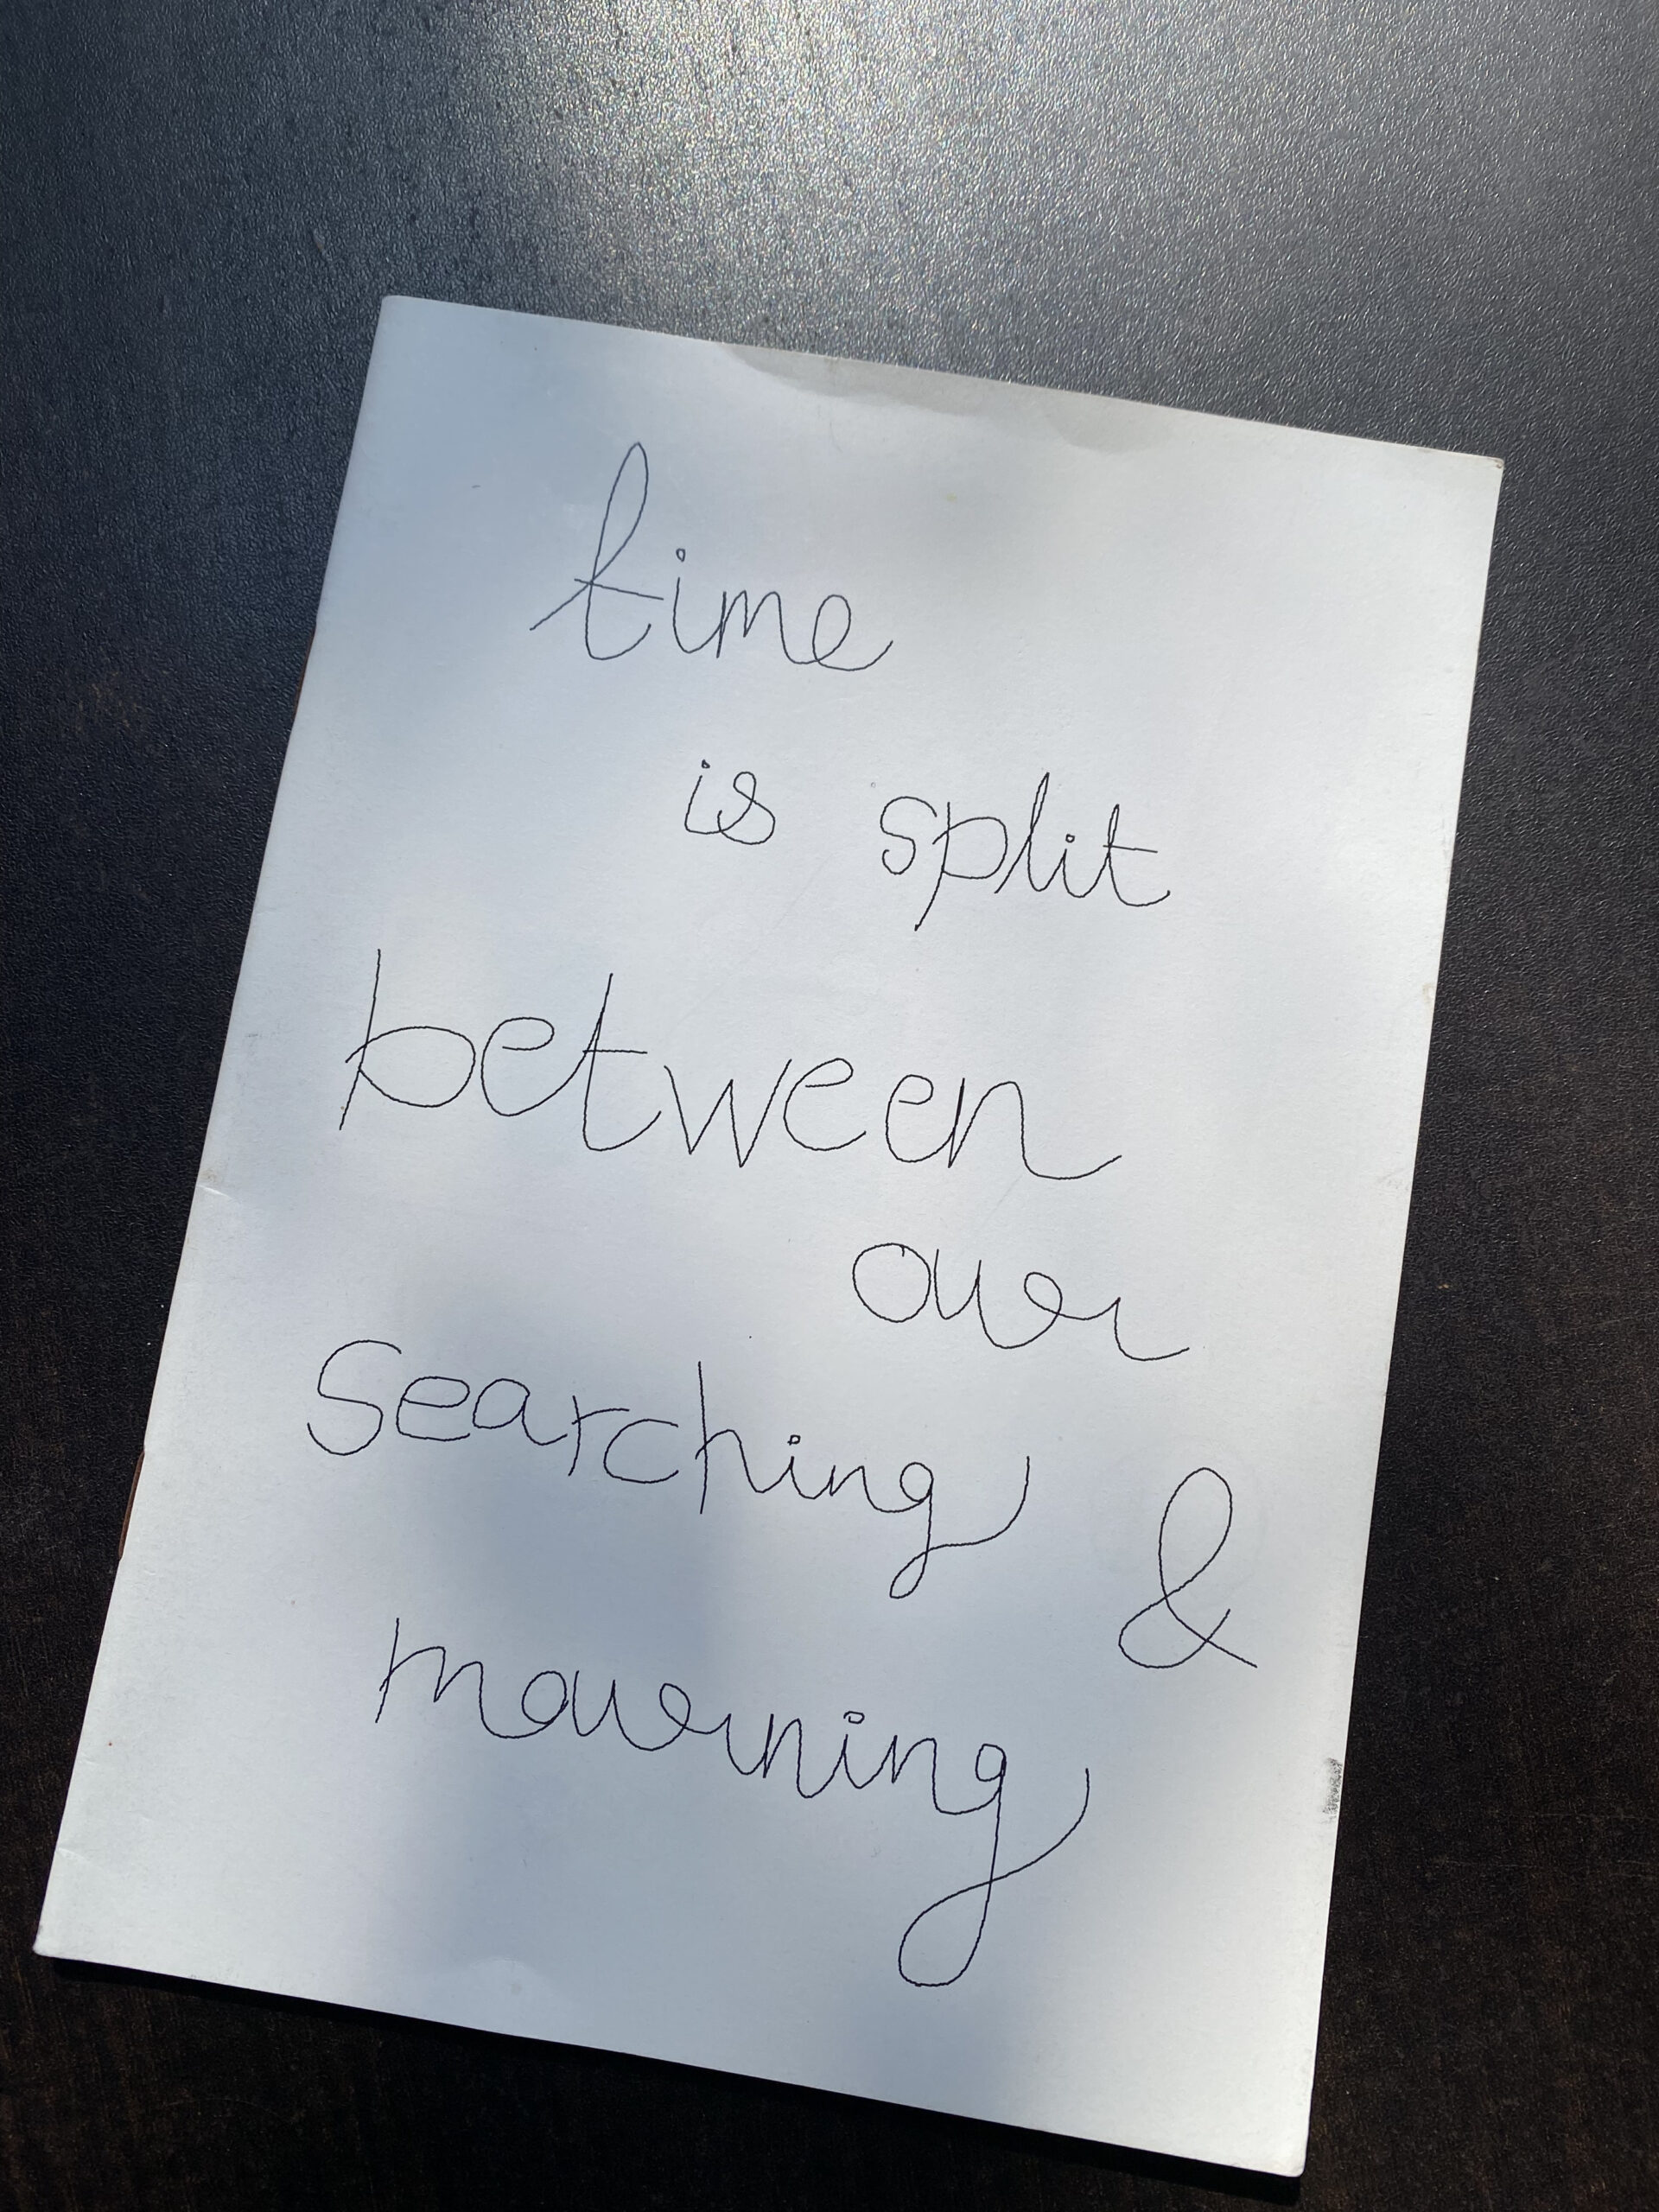 time
is split
between
our
searching &
mourning